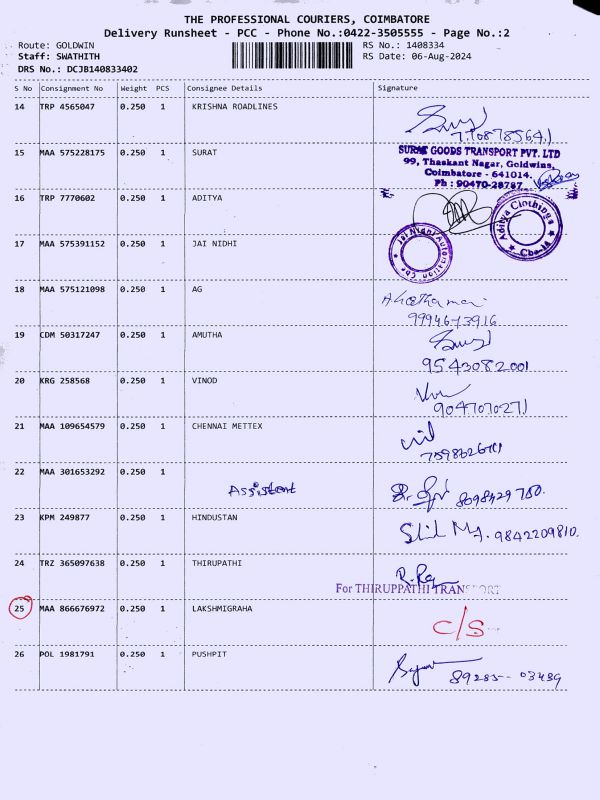 THE PROFESSIONAL COURIERS, COIMBATORE
Delivery Runsheet - PCC - Phone No.:0422-3505555 - Page No.:2
Route: GOLDWIN RS No.: 1408334
Staff: SWATHITH RS Date: 06-Aug-2024
DRS No.: DCJB140833402
S No Consignment No Weight PCS Consignee Details Signature
14 TRP 4565047 0.250 1 KRISHNA ROADLINES
15 MAA 575228175 0.250 1 SURAT
SURAT GOODS TRANSPORT PVT. LTD
99, Thaskant Nagar, Goldwins,
Coimbatore - 641014.
Ph : 90470-28787
16 TRP 7770602 0.250 1 ADITYA
Aditya Clothings
Cbe-14
17 MAA 575391152 0.250 1 JAI NIDHI
Jai Nidhi Automation
Cbe
18 MAA 575121098 0.250 1 AG
9994673916
19 CDM 50317247 0.250 1 AMUTHA
9543082001
20 KRG 258568 0.250 1 VINOD
9047070271
21 MAA 109654579 0.250 1 CHENNAI METTEX
22 MAA 301653292 0.250 1
Assistent
8098429780.
23 KPM 249877 0.250 1 HINDUSTAN
9842209810.
24 TRZ 365097638 0.250 1 THIRUPATHI
For THIRUPPATHI TRANSPORT
25 MAA 866676972 0.250 1 LAKSHMIGRAHA
C/S
26 POL 1981791 0.250 1 PUSHPIT
89285-- 03489